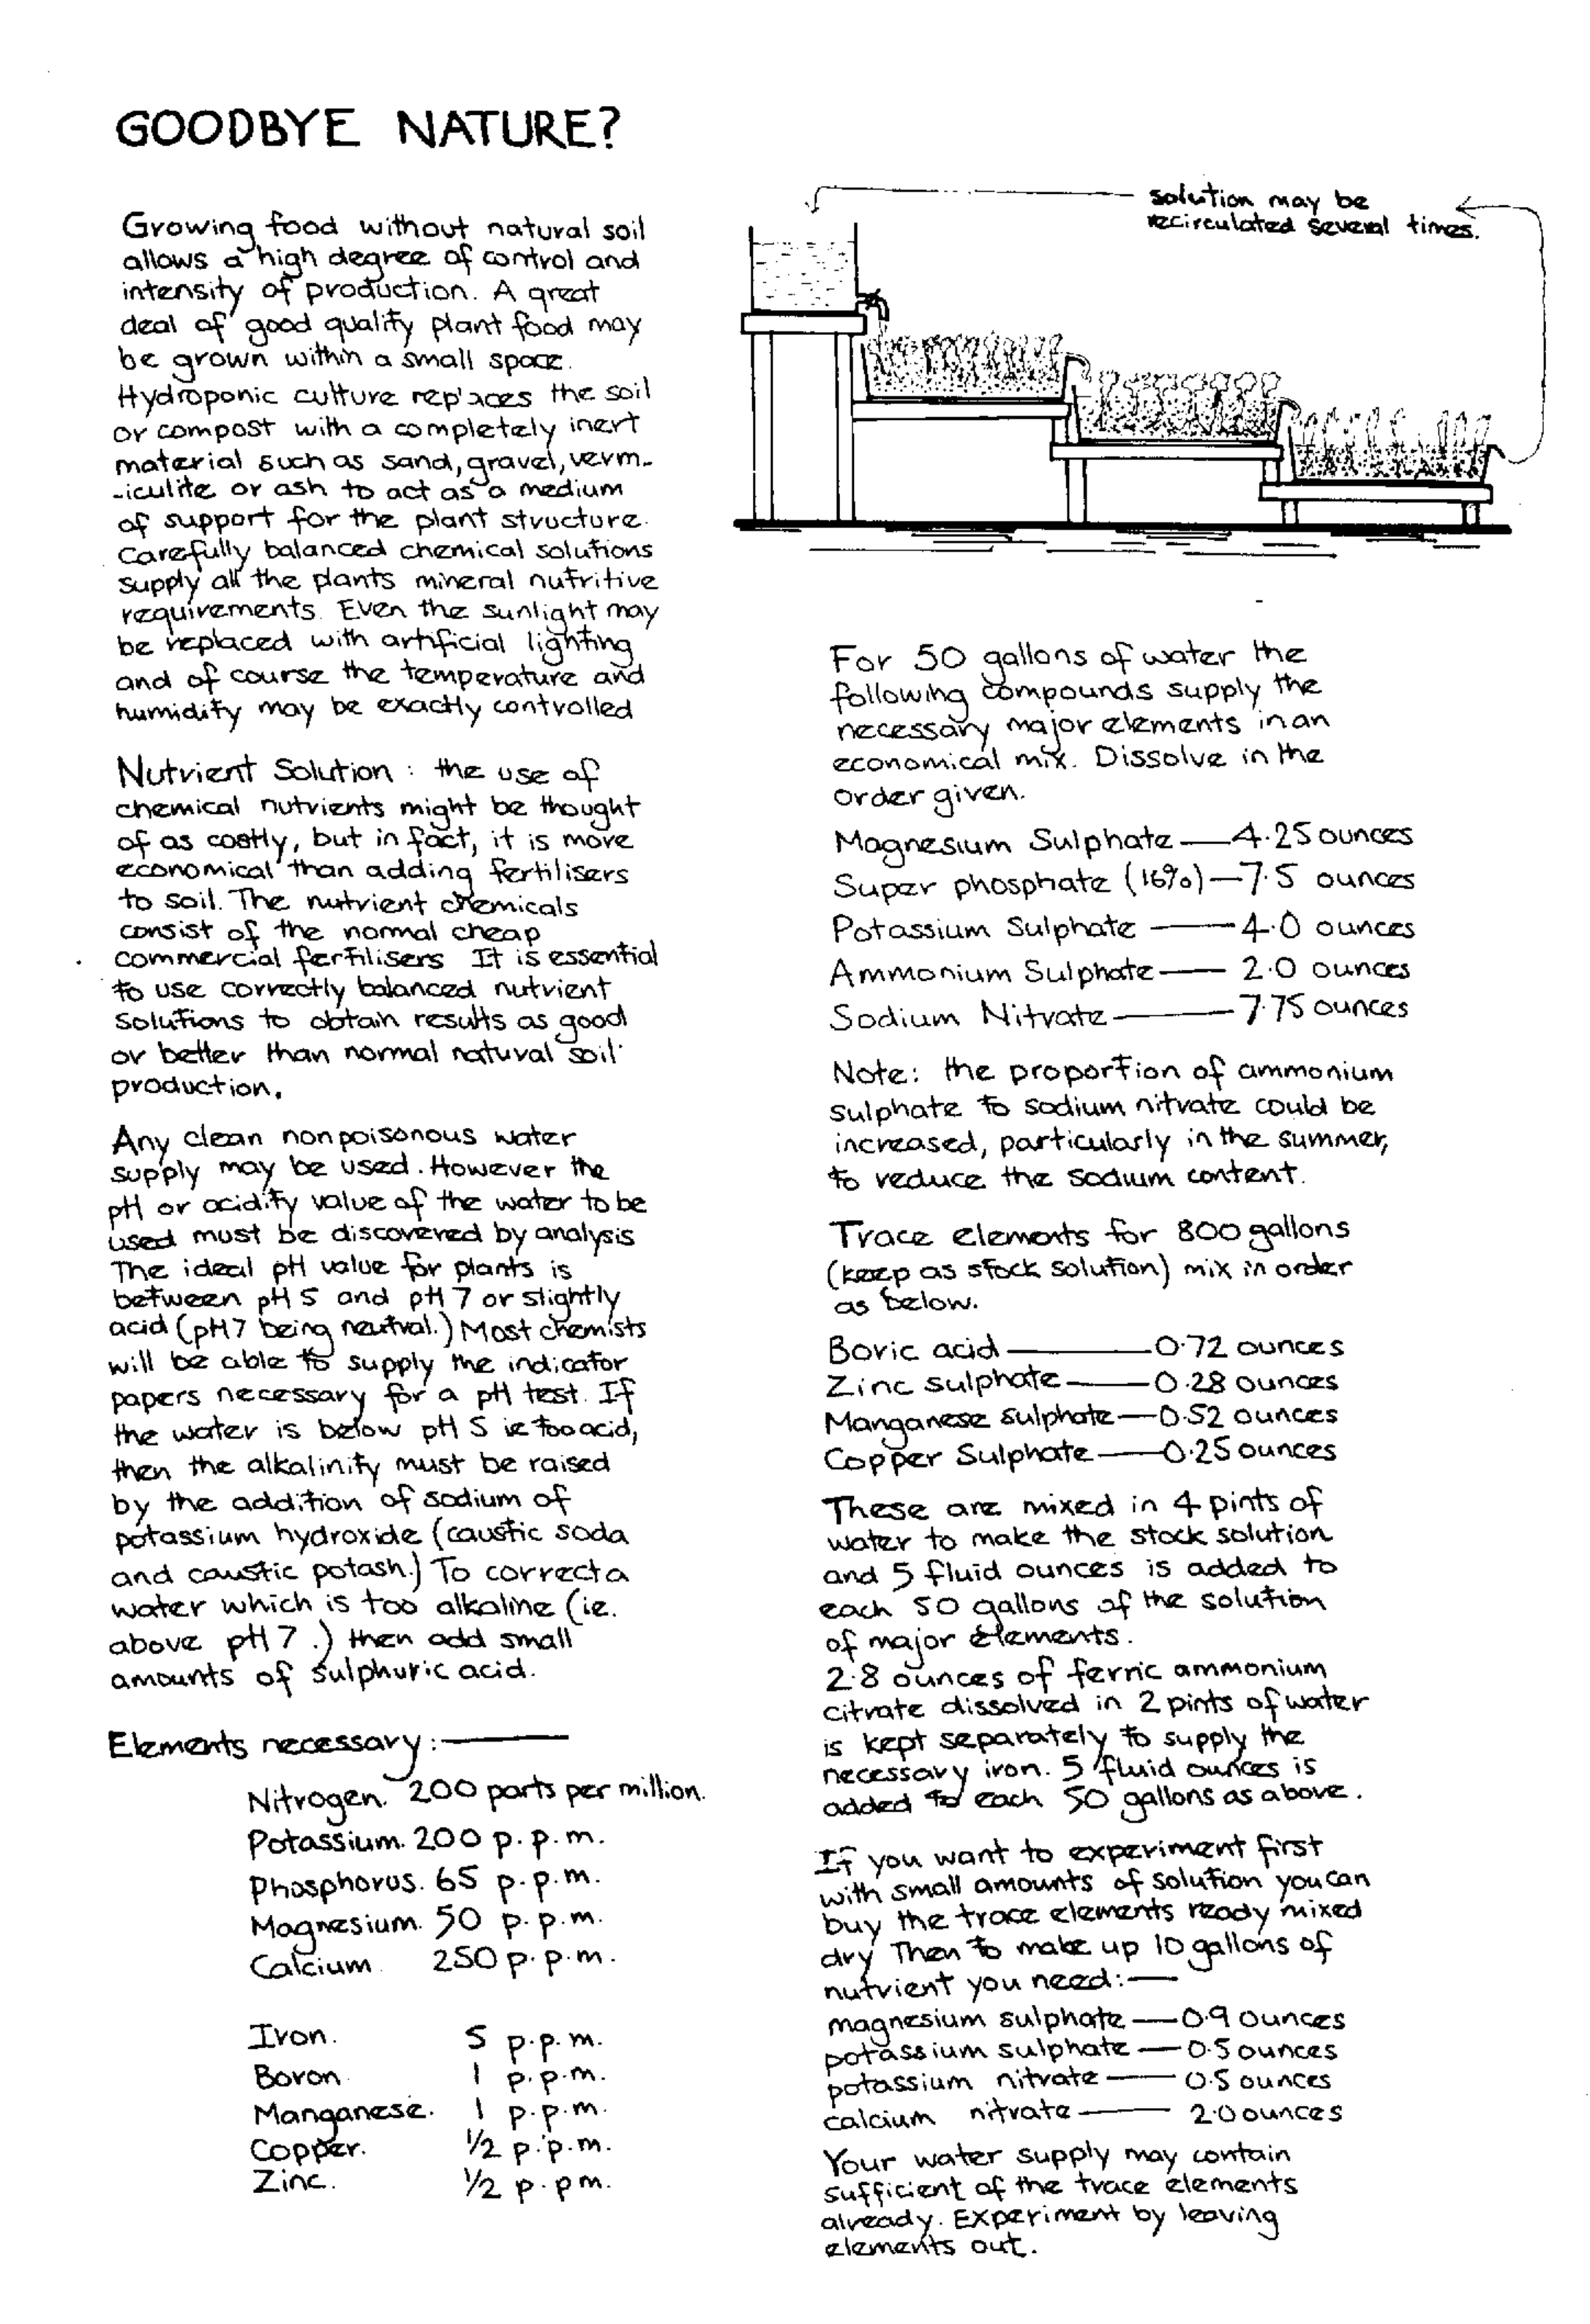 GOODBYE NATURE?
Growing food without natural soil
allows a high degree of control and
intensity of production. A great
deal of good quality plant food may
be grown within a small space.
Hydroponic culture replaces the soil
or compost with a completely inert
material such as sand, gravel, verm-
-iculite or ash to act as a medium
of support for the plant structure.
Carefully balanced chemical solutions
supply all the plants mineral nutritive
requirements. Even the sunlight may
be replaced with artificial lighting
and of course the temperature and
humidity may be exactly controlled
Nutrient Solution : the use of
chemical nutrients might be thought
of as costly, but in fact, it is more
economical than adding fertilisers
to soil. The nutrient chemicals
consist of the normal cheap
commercial fertilisers It is essential
to use correctly balanced nutrient
solutions to obtain results as good
or better than normal natural soil
production.
Any clean nonpoisonous water
supply may be used. However the
pH or acidity value of the water to be
used must be discovered by analysis
The ideal pH value for plants is
between pH 5 and pH 7 or slightly
acid (pH7 being neutral.) Most chemists
will be able to supply the indicator
papers necessary for a pH test. If
the water is below pH 5 ie too acid,
then the alkalinity must be raised
by the addition of sodium of
potassium hydroxide (caustic soda
and caustic potash.) To correct a
water which is too alkaline (ie.
above pH 7.) then add small
amounts of sulphuric acid.
Elements necessary :—
Nitrogen. 200 parts per million.
Potassium. 200 p.p.m.
Phosphorus. 65 p.p.m.
Magnesium. 50 p.p.m.
Calcium 250 p.p.m.
Iron. 5 p.p.m.
Boron 1 p.p.m.
Manganese. 1 p.p.m.
Copper. 1/2 p.p.m.
Zinc. 1/2 p.pm.
solution may be
recirculated several times.
For 50 gallons of water the
following compounds supply the
necessary major elements in an
economical mix. Dissolve in the
order given.
Magnesium Sulphate — 4.25 ounces
Super phosphate (16%) — 7.5 ounces
Potassium Sulphate — 4.0 ounces
Ammonium Sulphate — 2.0 ounces
Sodium Nitrate — 7.75 ounces
Note: the proportion of ammonium
sulphate to sodium nitrate could be
increased, particularly in the summer,
to reduce the sodium content.
Trace elements for 800 gallons
(keep as stock solution) mix in order
as below.
Boric acid — 0.72 ounces
Zinc sulphate — 0.28 ounces
Manganese sulphate — 0.52 ounces
Copper Sulphate — 0.25 ounces
These are mixed in 4 pints of
water to make the stock solution
and 5 fluid ounces is added to
each 50 gallons of the solution
of major elements.
2.8 ounces of ferric ammonium
citrate dissolved in 2 pints of water
is kept separately to supply the
necessary iron. 5 fluid ounces is
added to each 50 gallons as above.
If you want to experiment first
with small amounts of solution you can
buy the trace elements ready mixed
dry Then to make up 10 gallons of
nutrient you need:—
magnesium sulphate — 0.9 ounces
potassium sulphate — 0.5 ounces
potassium nitrate — 0.5 ounces
calcium nitrate — 2.0 ounces
Your water supply may contain
sufficient of the trace elements
already. Experiment by leaving
elements out.